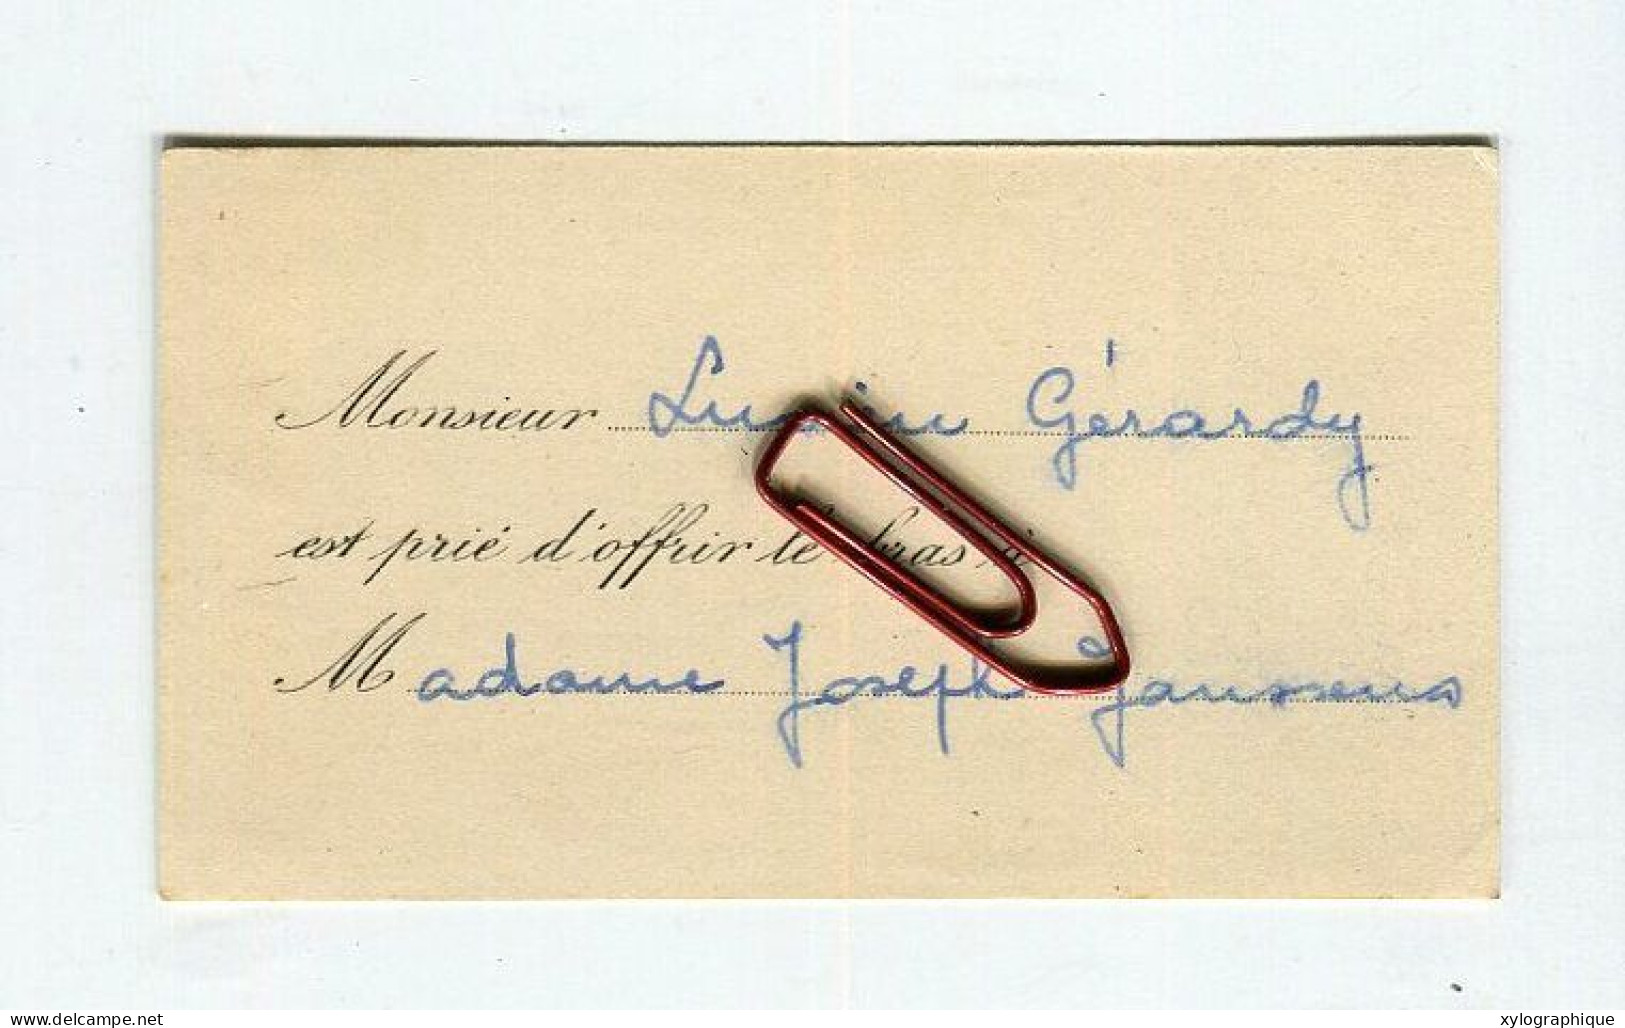 Monsieur Lucien Gérardy
est prié d'offrir le bras à
Madame Joseph Janssens
www.delcampe.net
xylographique